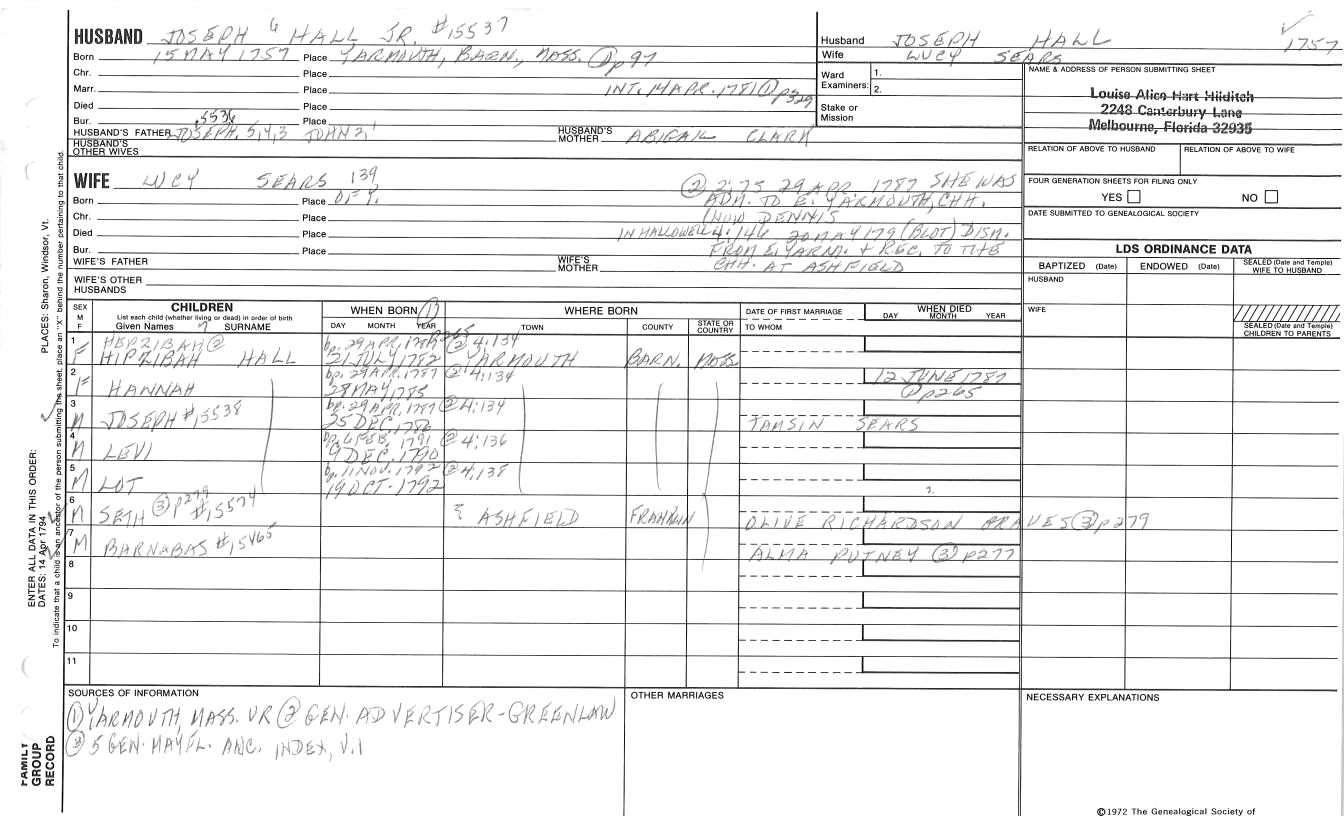 HUSBAND JOSEPH 6 HALL JR. #15537
Born 15 MAY 1757 Place YARMOUTH, BARN., MASS. ① p97
Chr. Place
Marr. Place INT. 14 APR. 1781 ① p329
Died Place
Bur. Place
15536
HUSBAND'S FATHER JOSEPH, 5,4,3 JOHN 2,1 HUSBAND'S MOTHER ABIGAIL CLARK
HUSBAND'S OTHER WIVES
Husband JOSEPH HALL 1757
Wife LUCY SEARS
Ward Examiners: 1.
2.
Stake or Mission
NAME & ADDRESS OF PERSON SUBMITTING SHEET
Louise Alice Hart Hilditch
2248 Canterbury Lane
Melbourne, Florida 32935
RELATION OF ABOVE TO HUSBAND RELATION OF ABOVE TO WIFE
FOUR GENERATION SHEETS FOR FILING ONLY
YES NO
DATE SUBMITTED TO GENEALOGICAL SOCIETY
WIFE LUCY SEARS 139
Born Place OF Y.
Chr. Place
Died Place
Bur. Place
② 2:75 29 APR. 1787 SHE WAS
ADM. TO E. YARMOUTH, CHH.
(NOW DENNIS
IN HALLOWELL 4:146 20 MAY 179 (BLOT) DISM.
FROM E. YARM. & REC. TO THE
CHH. AT ASHFIELD
WIFE'S FATHER WIFE'S MOTHER
WIFE'S OTHER HUSBANDS
LDS ORDINANCE DATA
BAPTIZED (Date) ENDOWED (Date) SEALED (Date and Temple) WIFE TO HUSBAND
HUSBAND
WIFE
SEALED (Date and Temple) CHILDREN TO PARENTS
SEX M F
CHILDREN
List each child (whether living or dead) in order of birth
Given Names 7 SURNAME
WHEN BORN ①
DAY MONTH YEAR p265
WHERE BORN
TOWN COUNTY STATE OR COUNTRY
DATE OF FIRST MARRIAGE
TO WHOM
WHEN DIED
DAY MONTH YEAR
1 HEPZIBAH ② bp. 29 APR. 1787 ② 4:134
F HIPZIBAH HALL 21 JULY 1782 YARMOUTH BARN. MASS
2 bp. 29 APR. 1787 ② 4:134 12 JUNE 1787
F HANNAH 28 MAY 1785 ① p265
3 bp. 29 APR. 1787 ② 4:134
M JOSEPH #15538 25 DEC. 1786 TAMSIN SEARS
4 bp. 6 FEB. 1791 ② 4:136
M LEVI 9 DEC. 1790
5 bp. 11 NOV. 1792 ② 4:138
M LOT 19 OCT. 1792
6 M SETH ③ p279 #15574 ? ASHFIELD FRANKLIN OLIVE RICHARDSON GRAVES ③ p279
7 M BARNABAS #15465 ALMA PUTNEY ③ p277
8
9
10
11
SOURCES OF INFORMATION
① YARMOUTH, MASS. VR ② GEN. ADVERTISER - GREENLAW
③ 5 GEN. MAYFL. ANC. INDEX, V.1
OTHER MARRIAGES
NECESSARY EXPLANATIONS
©1972 The Genealogical Society of
FAMILY GROUP RECORD
ENTER ALL DATA IN THIS ORDER:
DATES: 14 Apr 1794
PLACES: Sharon, Windsor, Vt.
To indicate that a child is an ancestor of the person submitting the sheet, place an "X" behind the number pertaining to that child.